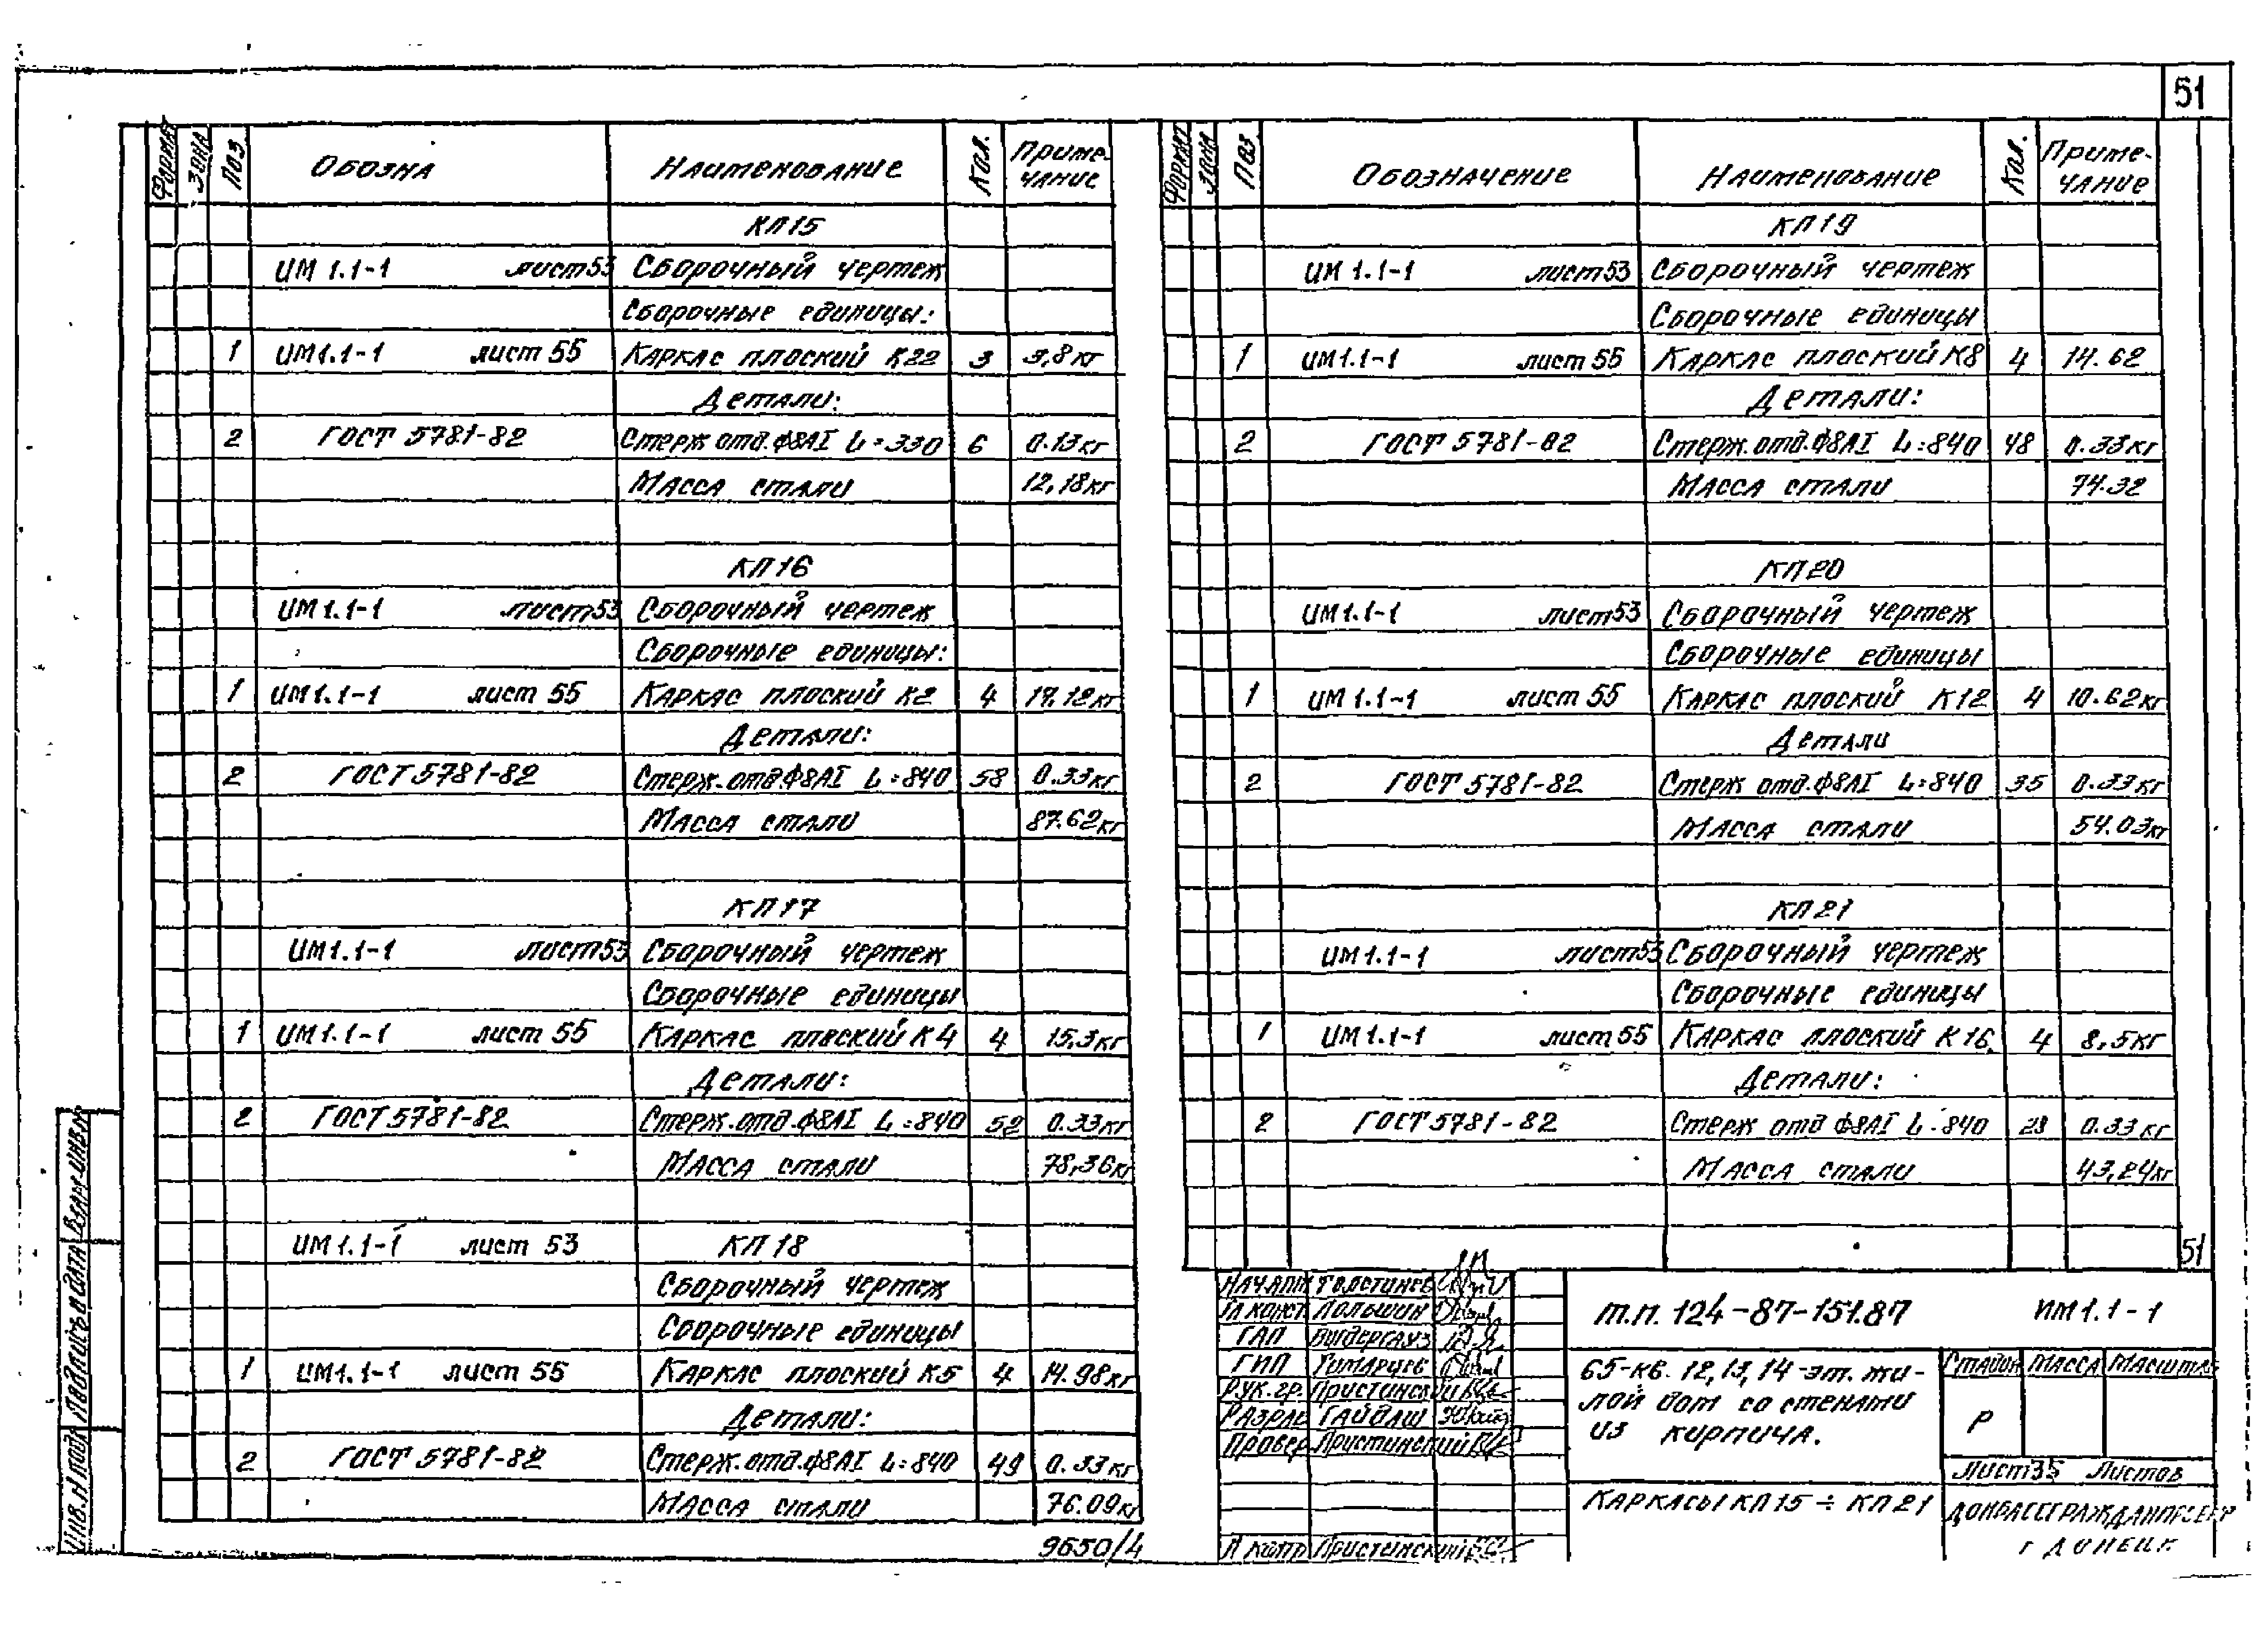 51
Формат Зона Поз Обозна Наименование Кол. Примечание
КП15
ИМ 1.1-1 лист 53 Сборочный чертеж
Сборочные единицы:
1 ИМ 1.1-1 лист 55 Каркас плоский К22 3 3,8 кг
Детали:
2 ГОСТ 5781-82 Стерж отд. Ф8АI L=330 6 0.13 кг
Масса стали 12,18 кг
КП16
ИМ 1.1-1 лист 53 Сборочный чертеж
Сборочные единицы:
1 ИМ 1.1-1 лист 55 Каркас плоский К2 4 17.12 кг
Детали:
2 ГОСТ 5781-82 Стерж. отд. Ф8АI L=840 58 0.33 кг
Масса стали 87.62 кг
КП17
ИМ 1.1-1 лист 53 Сборочный чертеж
Сборочные единицы
1 ИМ 1.1-1 лист 55 Каркас плоский К4 4 15,3 кг
Детали:
2 ГОСТ 5781-82 Стерж. отд. Ф8АI L=840 52 0.33 кг
Масса стали 78,36 кг
ИМ 1.1-1 лист 53 КП18
Сборочный чертеж
Сборочные единицы
1 ИМ 1.1-1 лист 55 Каркас плоский К5 4 14.98 кг
Детали:
2 ГОСТ 5781-82 Стерж. отд. Ф8АI L=840 49 0.33 кг
Масса стали 76.09 кг
9650/4
Формат Зона Поз Обозначение Наименование Кол. Примечание
КП19
ИМ 1.1-1 лист 53 Сборочный чертеж
Сборочные единицы
1 ИМ 1.1-1 лист 55 Каркас плоский К8 4 14.62
Детали:
2 ГОСТ 5781-82 Стерж. отд. Ф8АI L=840 48 0.33 кг
Масса стали 74.32
КП20
ИМ 1.1-1 лист 53 Сборочный чертеж
Сборочные единицы
1 ИМ 1.1-1 лист 55 Каркас плоский К12 4 10.62 кг
Детали
2 ГОСТ 5781-82 Стерж отд. Ф8АI L=840 35 0.33 кг
Масса стали 54.03 кг
КП21
ИМ 1.1-1 лист 53 Сборочный чертеж
Сборочные единицы
1 ИМ 1.1-1 лист 55 Каркас плоский К16 4 8,5 кг
Детали:
2 ГОСТ 5781-82 Стерж отд Ф8АI L=840 28 0.33 кг
Масса стали 43,24 кг
51
Гл конст. Лольшин
ГАП Выдергауз
ГИП Тимарцев
Рук. гр. Пристинский
Разраб Гайдаш
Провер Пристинский
Н контр Пристинский
т.п. 124-87-151.87 ИМ 1.1-1
65-кв. 12, 13, 14-эт. жи-
лой дом со стенами
из кирпича.
Стадия Масса Масштаб
Р
Лист 35 Листов
Каркасы КП15 ÷ КП21
Донбассгражданпроект
г Донецк
Инв. N подл Подпись и дата Взам. инв. N